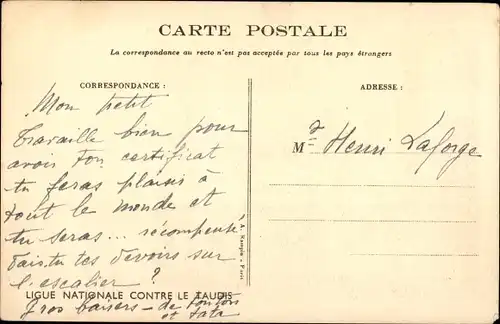 CARTE POSTALE
La correspondance au recto n'est pas acceptée par tous les pays étrangers
CORRESPONDANCE :
Mon petit
Travaille bien pour
avoir ton certificat
tu feras plaisir à
tout le monde et
tu seras... récompensé
Fais-tu tes devoirs sur
l'escalier ?
LIGUE NATIONALE CONTRE LE TAUDIS
Gros baisers - de tonton
et Tata
A. Rampin - Paris
ADRESSE :
M Henri Laforge